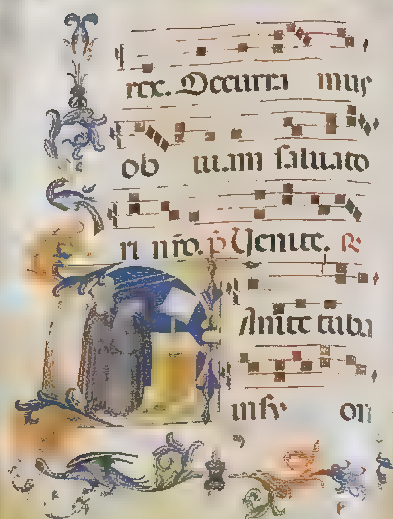 rex. Occurra mus
ob uiam saluato
ri nr̃o. p̃ Uenite. R
Anite tuba
insy on